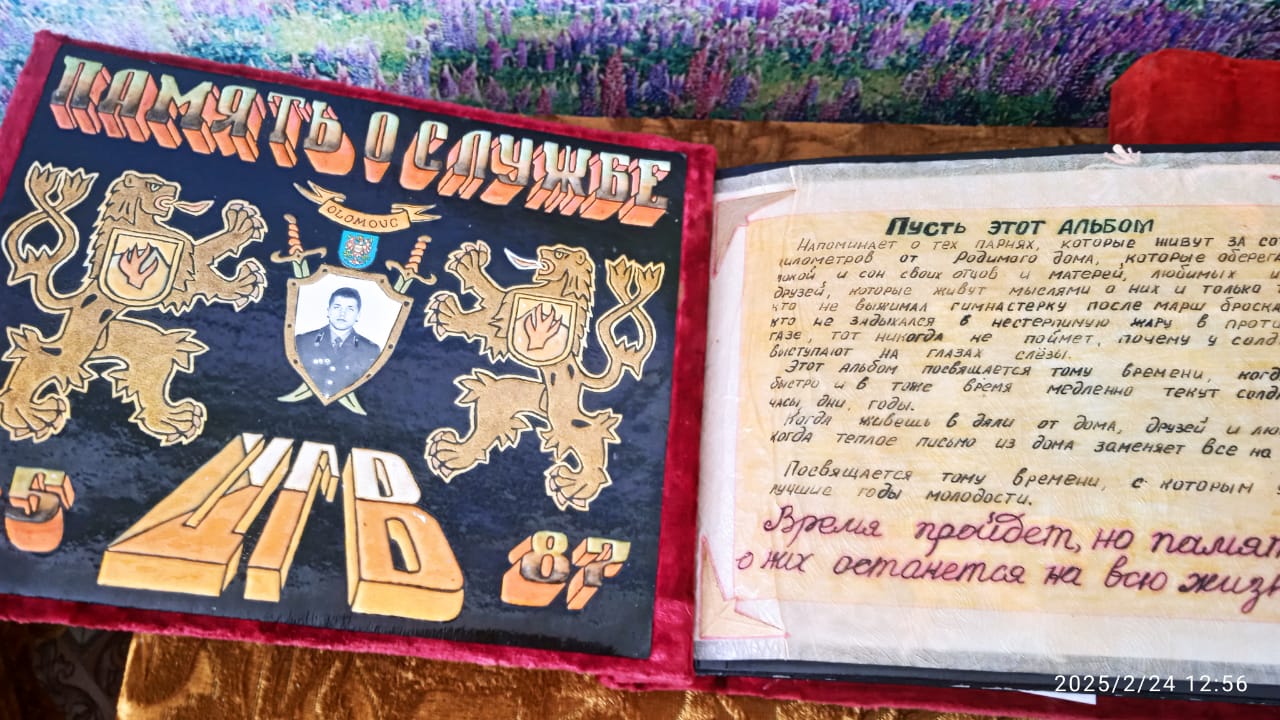 ПАМЯТЬ О СЛУЖБЕ
OLOMOUC
ЦГВ
87
Пусть этот альбом
Напоминает о тех парнях, которые живут за
километров от Родимого дома, которые
покой и сон своих отцов и матерей, любимых и
друзей, которые живут мыслями о них и только
кто не выжимал гимнастерку после марш
кто не задыхался в нестерпимую жару в
газе, тот никогда не поймет, почему у
выступают на глазах слёзы.
Этот альбом посвящается тому времени,
быстро и в тоже время медленно текут
часы, дни, годы.
Когда живешь в дали от дома, друзей и
когда теплое письмо из дома заменяет все на
Посвящается тому времени, с которым
лучшие годы молодости.
Время пройдет, но
о них останется на всю
2025/2/24 12:56